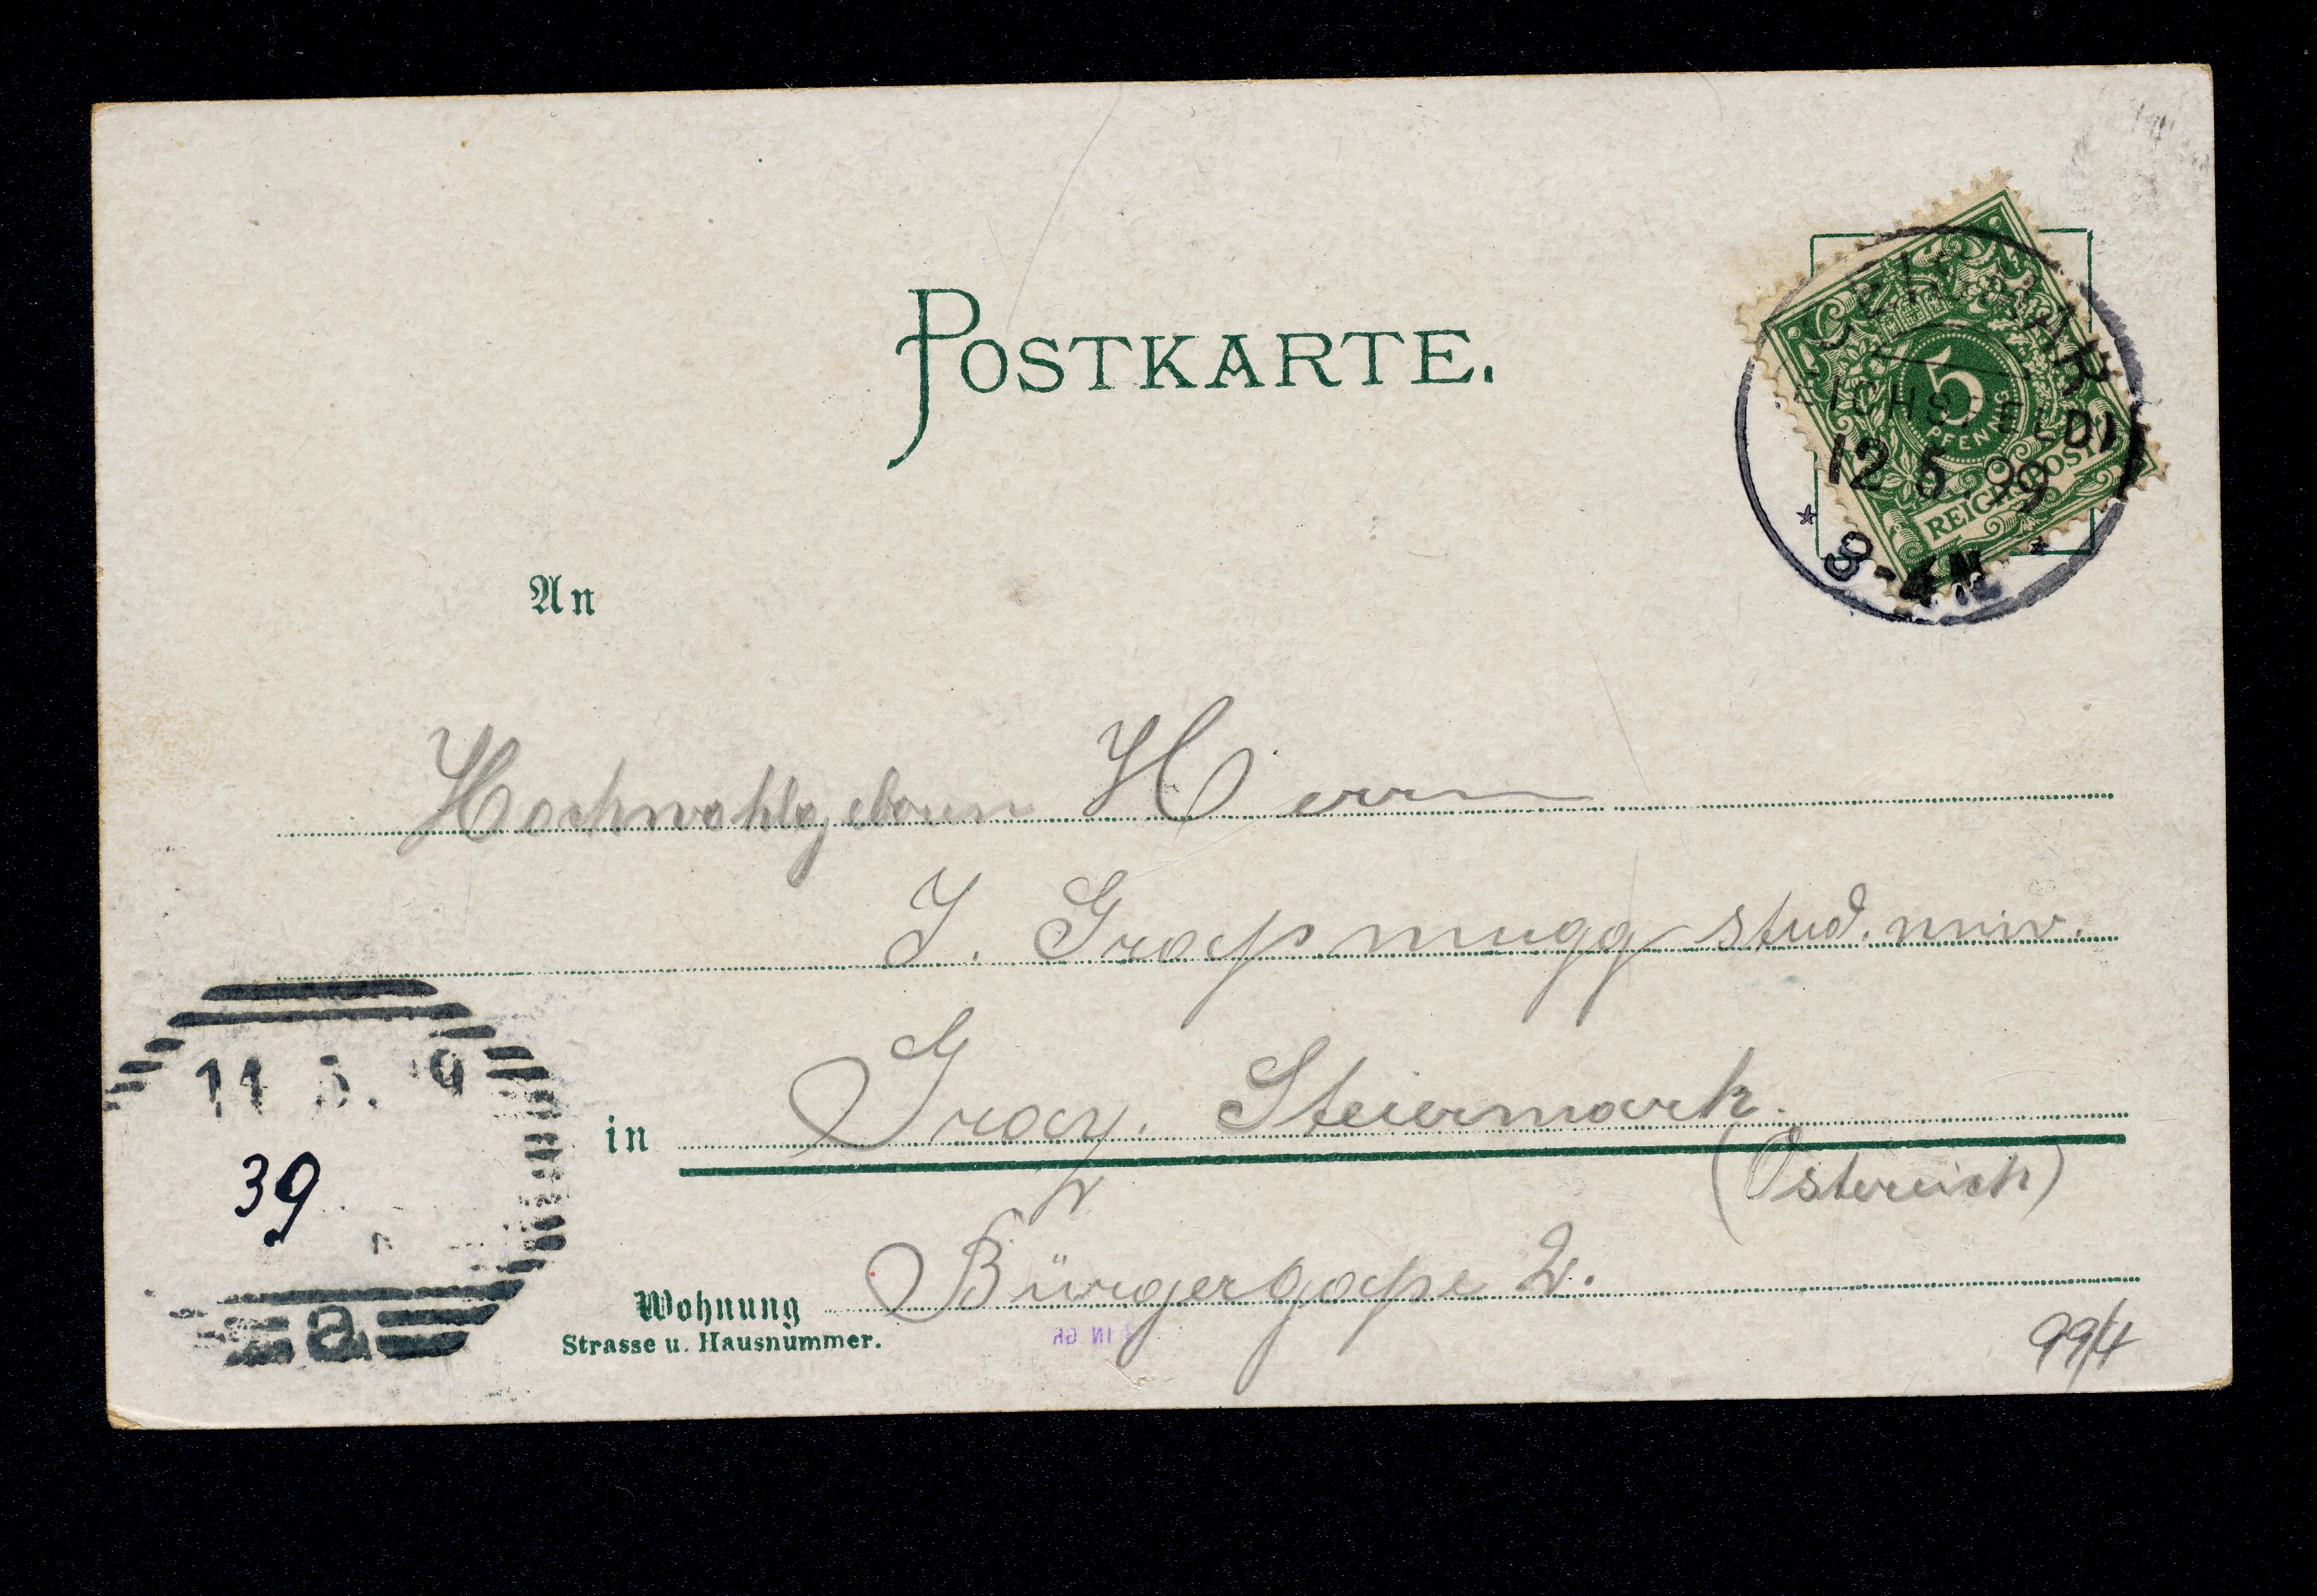 POSTKARTE.
GEISMAR
(EICHSFELD)
12 5. 99
* 3-4N. *
5
PFENNIG
REICHSPOST
An
Hochwohlgeboren Herrn
J. Graßmugg stud. univ.
in Graz. Steiermark.
(Östereich)
Wohnung Bürgergaße 2.
Strasse u. Hausnummer.
14 5. 9
39
a
99/4